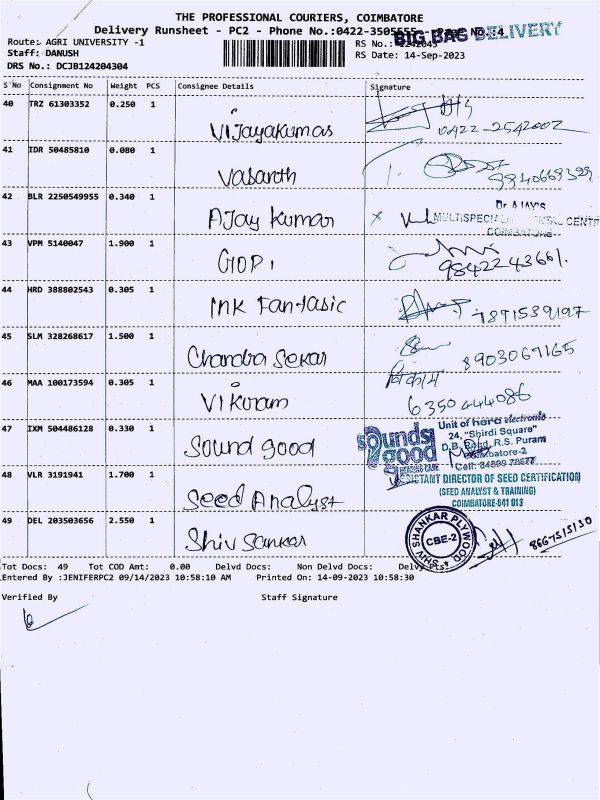 THE PROFESSIONAL COURIERS, COIMBATORE
Delivery Runsheet - PC2 - Phone No.:0422-3505555 - Page No.:4
BIG BAG DELIVERY
Route: AGRI UNIVERSITY -1
RS No.: 1242043
Staff: DANUSH
RS Date: 14-Sep-2023
DRS No.: DCJB124204304
S No Consignment No Weight PCS Consignee Details Signature
40 TRZ 61303352 0.250 1 Vijayakumar 0422-2542002
41 IDR 50485810 0.080 1 Vasanth
42 BLR 2250549955 0.340 1 Ajay kumar
Dr AJAY'S
MULTISPECIAL DENTAL CENTR
COIMBATORE
43 VPM 5140047 1.900 1 GOPI 9842243661.
44 HRD 388802543 0.305 1 Ink Fantasic 7871539197
45 SLM 328268617 1.500 1 Chandra Sekar 8903069165
46 MAA 100173594 0.305 1 Vikram विकाम 6350444086
47 IXM 504486128 0.330 1 Sound good
sounds good
HEARING CARE
Unit of hero electronic
24, "Shirdi Square"
D.B. Road, R.S. Puram
Coimbatore-2
Cell: 84899 78677
48 VLR 3191941 1.700 1 Seed Analyst
ASSISTANT DIRECTOR OF SEED CERTIFICATION
(SEED ANALYST & TRAINING)
COIMBATORE-641 013
49 DEL 203503656 2.550 1 Shiv Sankar
SHIV SHANKAR PLYWOOD
CBE-2
8667515130
Tot Docs: 49 Tot COD Amt: 0.00 Delvd Docs: Non Delvd Docs: Delvy Pts:
Entered By :JENIFERPC2 09/14/2023 10:58:10 AM Printed On: 14-09-2023 10:58:30
Verified By Staff Signature